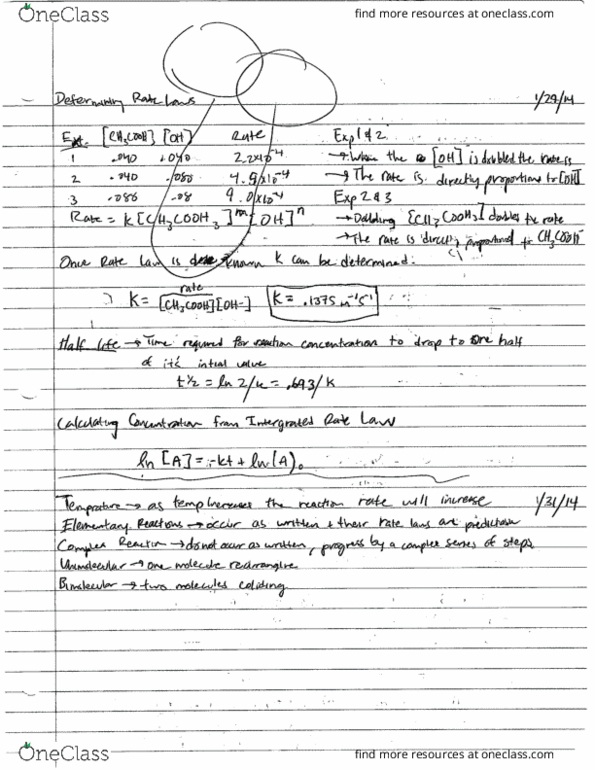 OneClass
find more resources at oneclass.com
Determining Rate Laws 1/29/14
Ext. [CH3COOH] [OH] Rate Exp 1 & 2
1 .040 .040 2.2x10^-4 → When the [OH] is doubled the rate is
2 .040 .080 4.5x10^-4 → The rate is directly proportional to [OH]
3 .080 .08 9.0x10^-4 Exp 2 & 3
Rate = K[CH3COOH3]^m[OH]^n → Doubling [CH3COOH3] doubles the rate
→ The rate is directly proportional to CH3COOH
Once Rate Law is known K can be determined.
K = rate / [CH3COOH][OH-] K = .1375 m^-1 s^-1
Half life → Time required for reaction concentration to drop to one half
of it's initial value
t½ = ln 2/k = .693/k
Calculating Concentration from Intergrated Rate Law
ln[A] = -kt + ln(A)o
Temprature → as temp increases the reaction rate will increase 1/31/14
Elementary Reactions → occur as written + their rate laws are
Complex Reaction → do not occur as written, progress by a complex series of steps
Unimolecular → one molecule
Bimolecular → two molecules coliding
OneClass
find more resources at oneclass.com